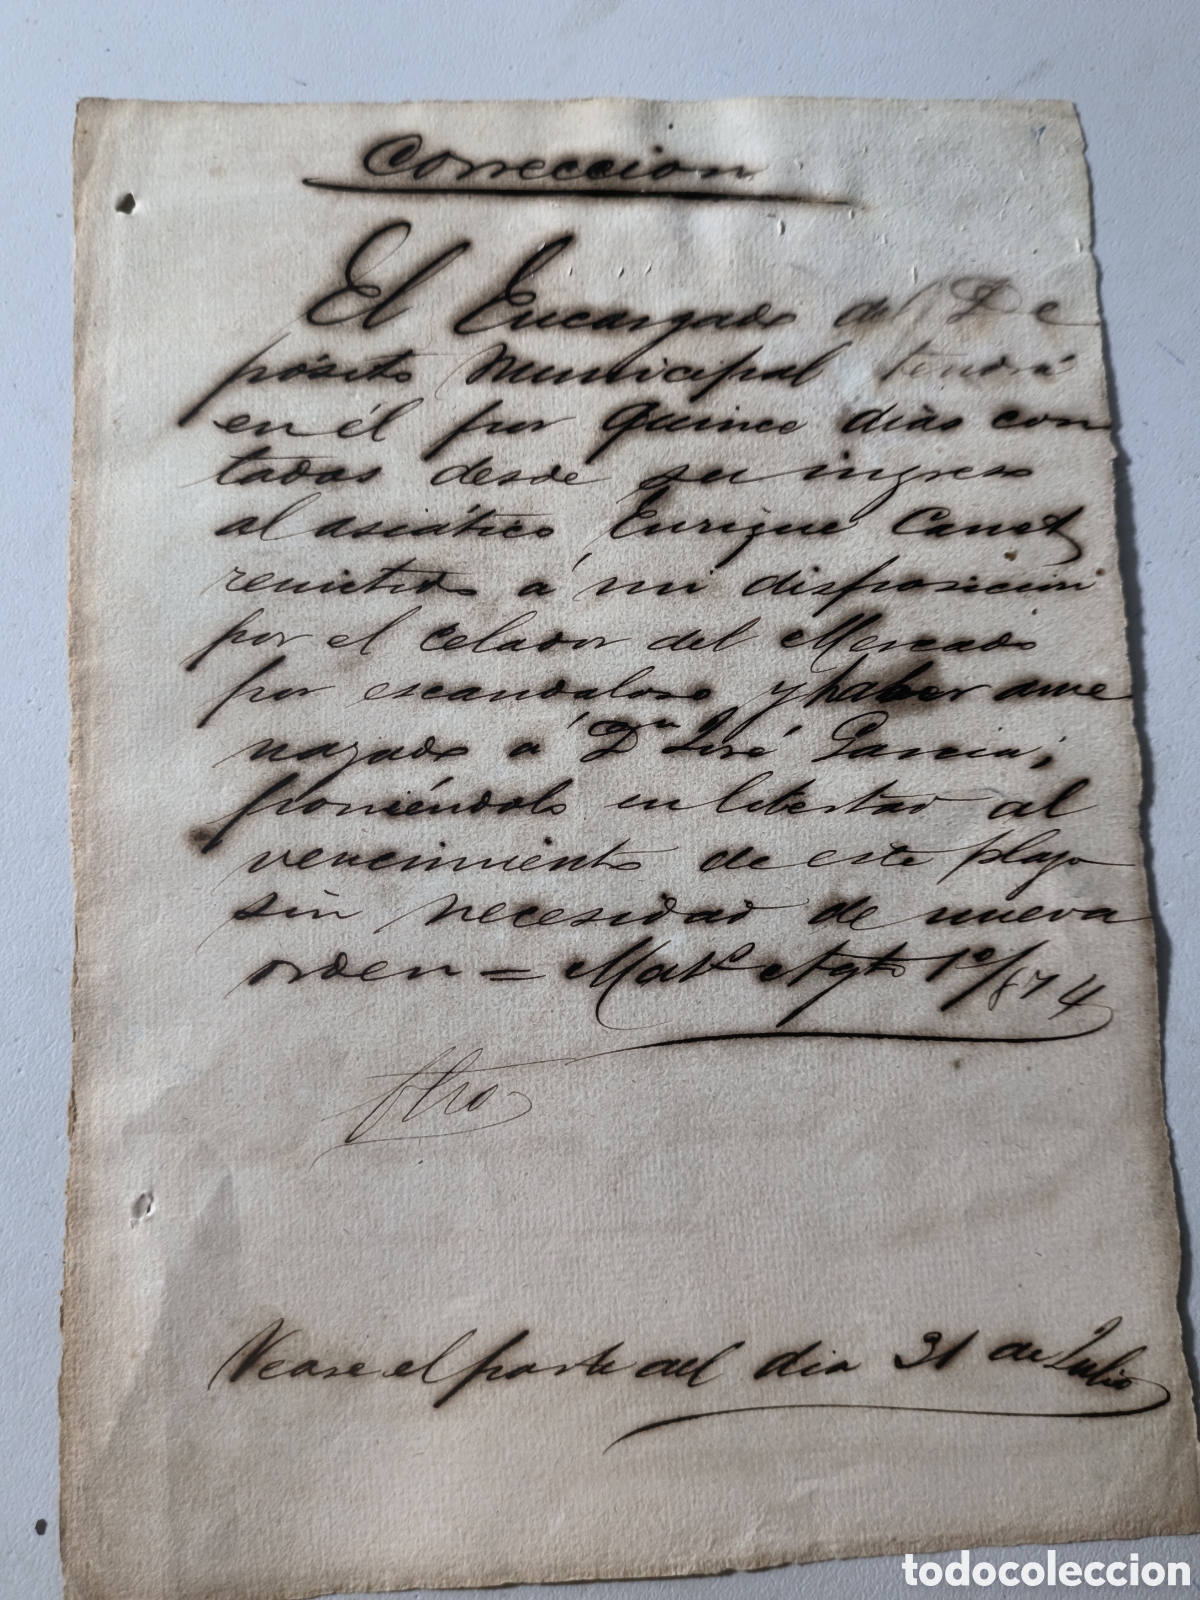 Correccion
El Encargado del De
pósito Municipal tendrá
en él por quince dias con
tados desde su ingreso
al asiático Enrique Canet
remitido á mi disposicion
por el Celador del Mercado
por escandaloso y haber ame
nazado á Dn José Garcia;
poniéndolo en libertad al
vencimiento de este plazo
sin necesidad de nueva
orden = Mats Agto 1º/874
Otro
Vease el parte del dia 31 de Julio
todocoleccion